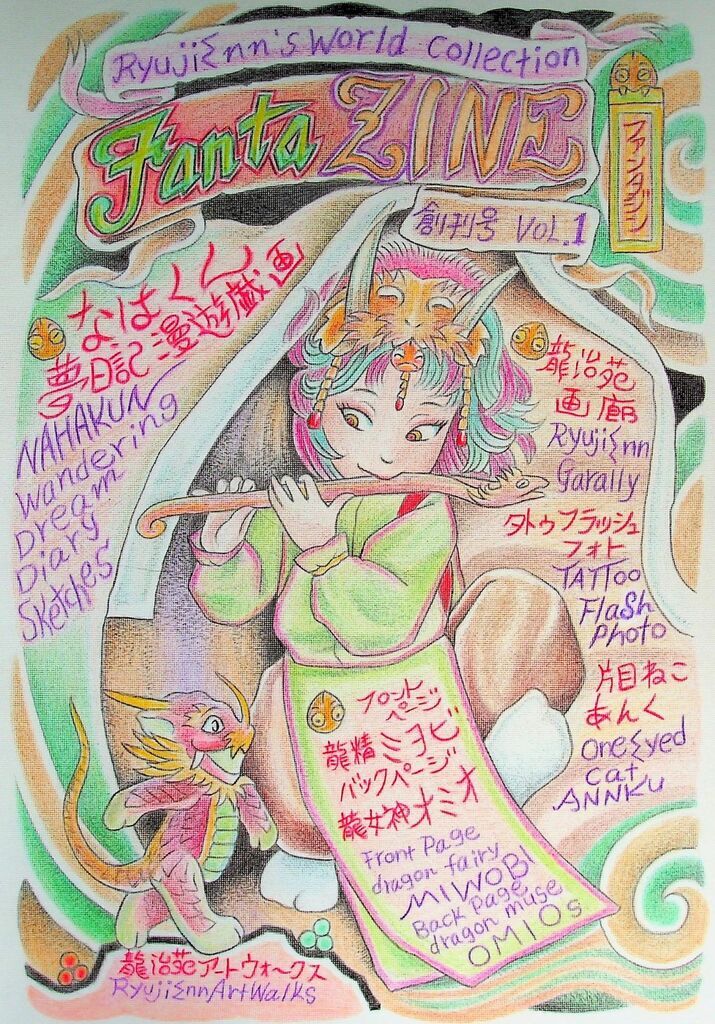 RyujiΣnn's World Collection
Fanta ZINE
ファンタジン
創刊号 VOL.1
なはくん
夢日記漫遊戯画
NAHAKUN
Wandering
Dream
Diary
Sketches
龍治苑
画廊
RyujiΣnn
Garally
タトゥフラッシュ
フォト
TATToo
FlaSh
Photo
片目ねこ
あんく
oneΣyed
cat
ANNKu
フロント
ページ
龍精ミヨビ
バックページ
龍女神オミオ
Front Page
dragon fairy
MIWOBI
Back Page
dragon muse
OMIOs
龍治苑アートウォークス
RyujiΣnnArtWalks